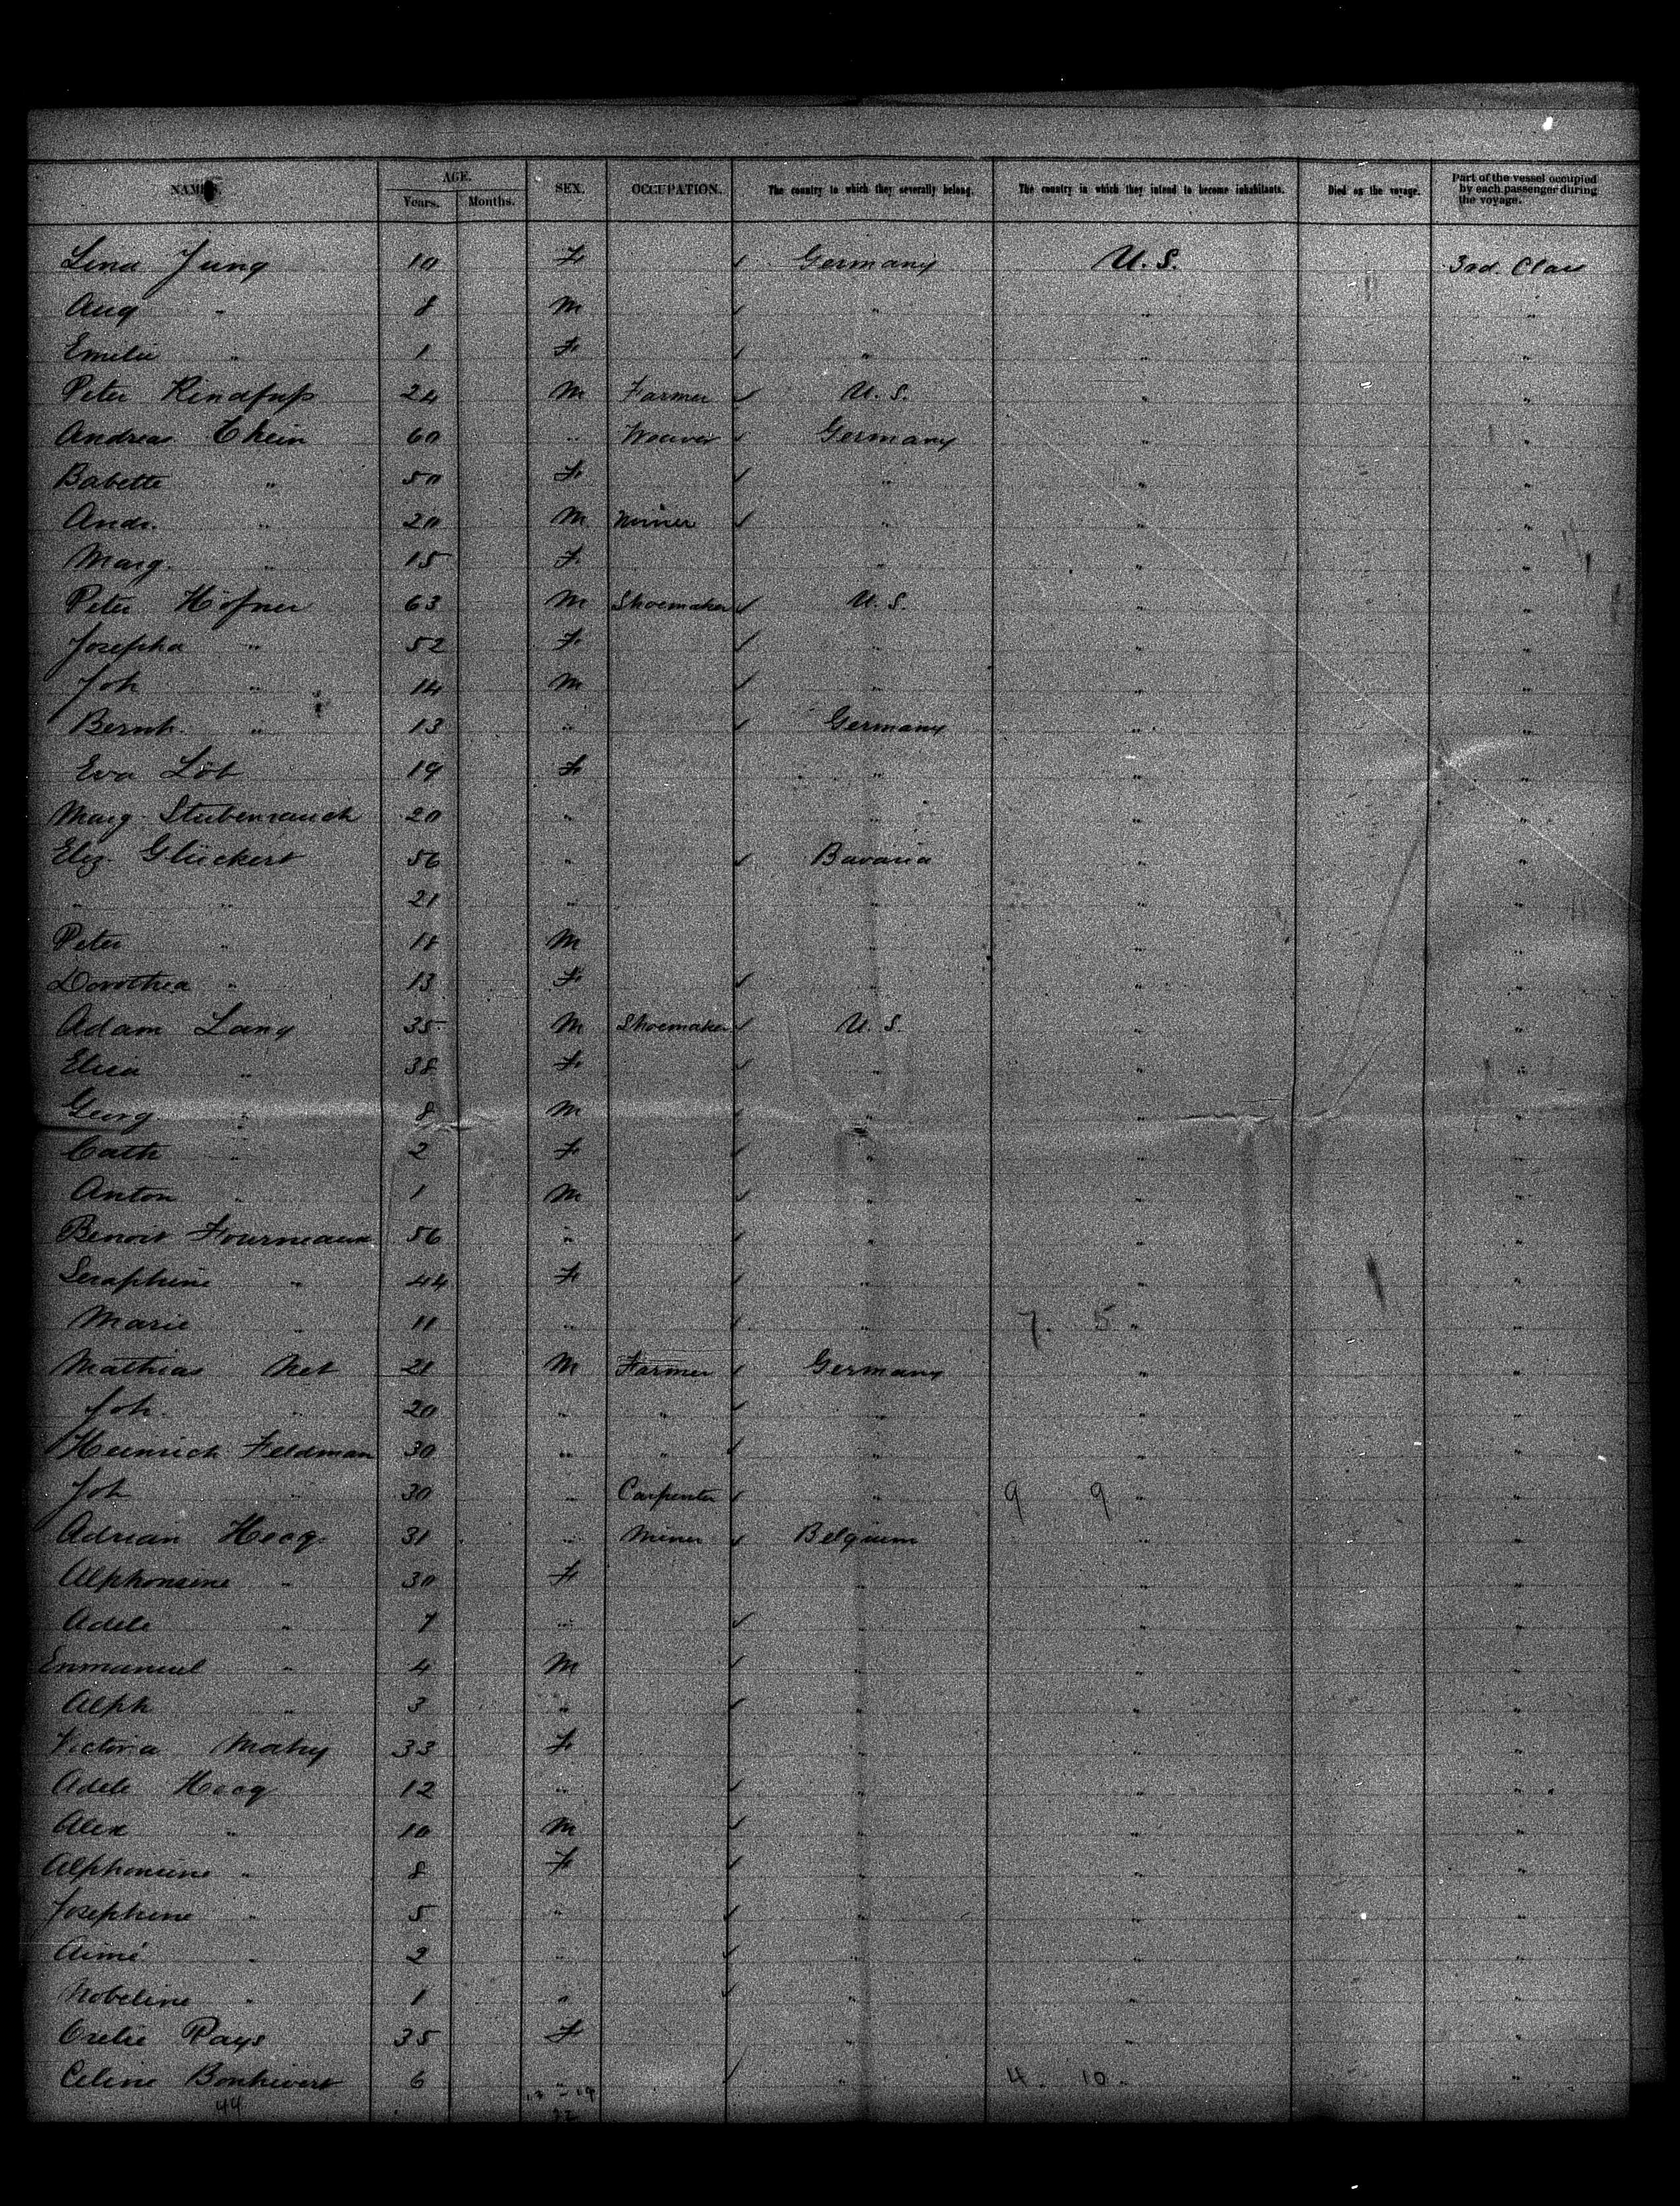 NAMES. AGE. SEX. OCCUPATION. The country to which they severally belong. The country in which they intend to become inhabitants. Died on the voyage. Part of the vessel occupied by each passenger during the voyage.
Years. Months.
Lina Jung 10 F Germany U.S. 3rd. Class
Aug " 8 M " " "
Emilie " 1 F " " "
Peter Rindfuß 24 M Farmer U.S. " "
Andreas Thein 60 " Weaver Germany " "
Babette " 50 F " " "
Andr. " 20 M Miner " " "
Marg. " 15 F. " " "
Peter Höfner 63 M Shoemaker U.S. " "
Josepha " 52 F " " "
Joh " 14 M " " "
Bernh. " 13 " Germany " "
Eva Löb 19 F " " "
Marg. Stubenrauch 20 " " " "
Eliz. Glückert 56 " Bavaria " "
" " 21 " " " "
Peter " 18 M " " "
Dorothea " 13 F " " "
Adam Lang 35 M Shoemaker U.S. " "
Elisa " 38 F " " "
Georg " 8 M " " "
Cath " 2 F " " "
Anton " 1 M " " "
Benoit Fourneaux 56 " " " "
Seraphine " 44 F " " "
Marie " 11 " " 7. 5 " "
Mathias Net 21 M Farmer Germany " "
Joh. " 20 " " " " "
Heinrich Feldman 30 " " " " "
Joh " 30 " Carpenter " 9 9 " "
Adrian Hocq 31 " Miner Belgium " "
Alphonsine " 30 F " " "
Adele " 7 " " " "
Emmanuel " 4 M " " "
Alph " 3 " " " "
Victoria Mahy 33 F " " "
Adele Hocq 12 " " " "
Alex " 10 M " " "
Alphonsine " 8 F " " "
Josephine " 5 " " " "
Aimé " 2 " " " "
Nobeline " 1 " " " "
Rays 35 F " " "
Celine Bonhivert 6 " " 4. 10 " "
44